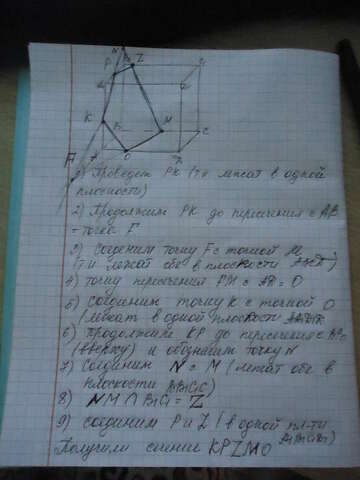 1) Проведем PK (т.к лежат в одной
плоскости)
2) Продолжим PK до пересечения с AB
- точка F
3) Соеденим точку F с точкой M
(т.к лежат обе в плоскости
4) точку пересечения FM с = O
5) соединим точку K с точкой O
(лежат в одной плоскости
6) Продолжим KP до пересечения с
(вверху) и обозначим точку N
7) Соединим N с M (лежат обе в
плоскости
8) NM ∩ B₁C₁ = Z
9) соединим P и Z (в одной пл-ти
Получили сечение KPZMO